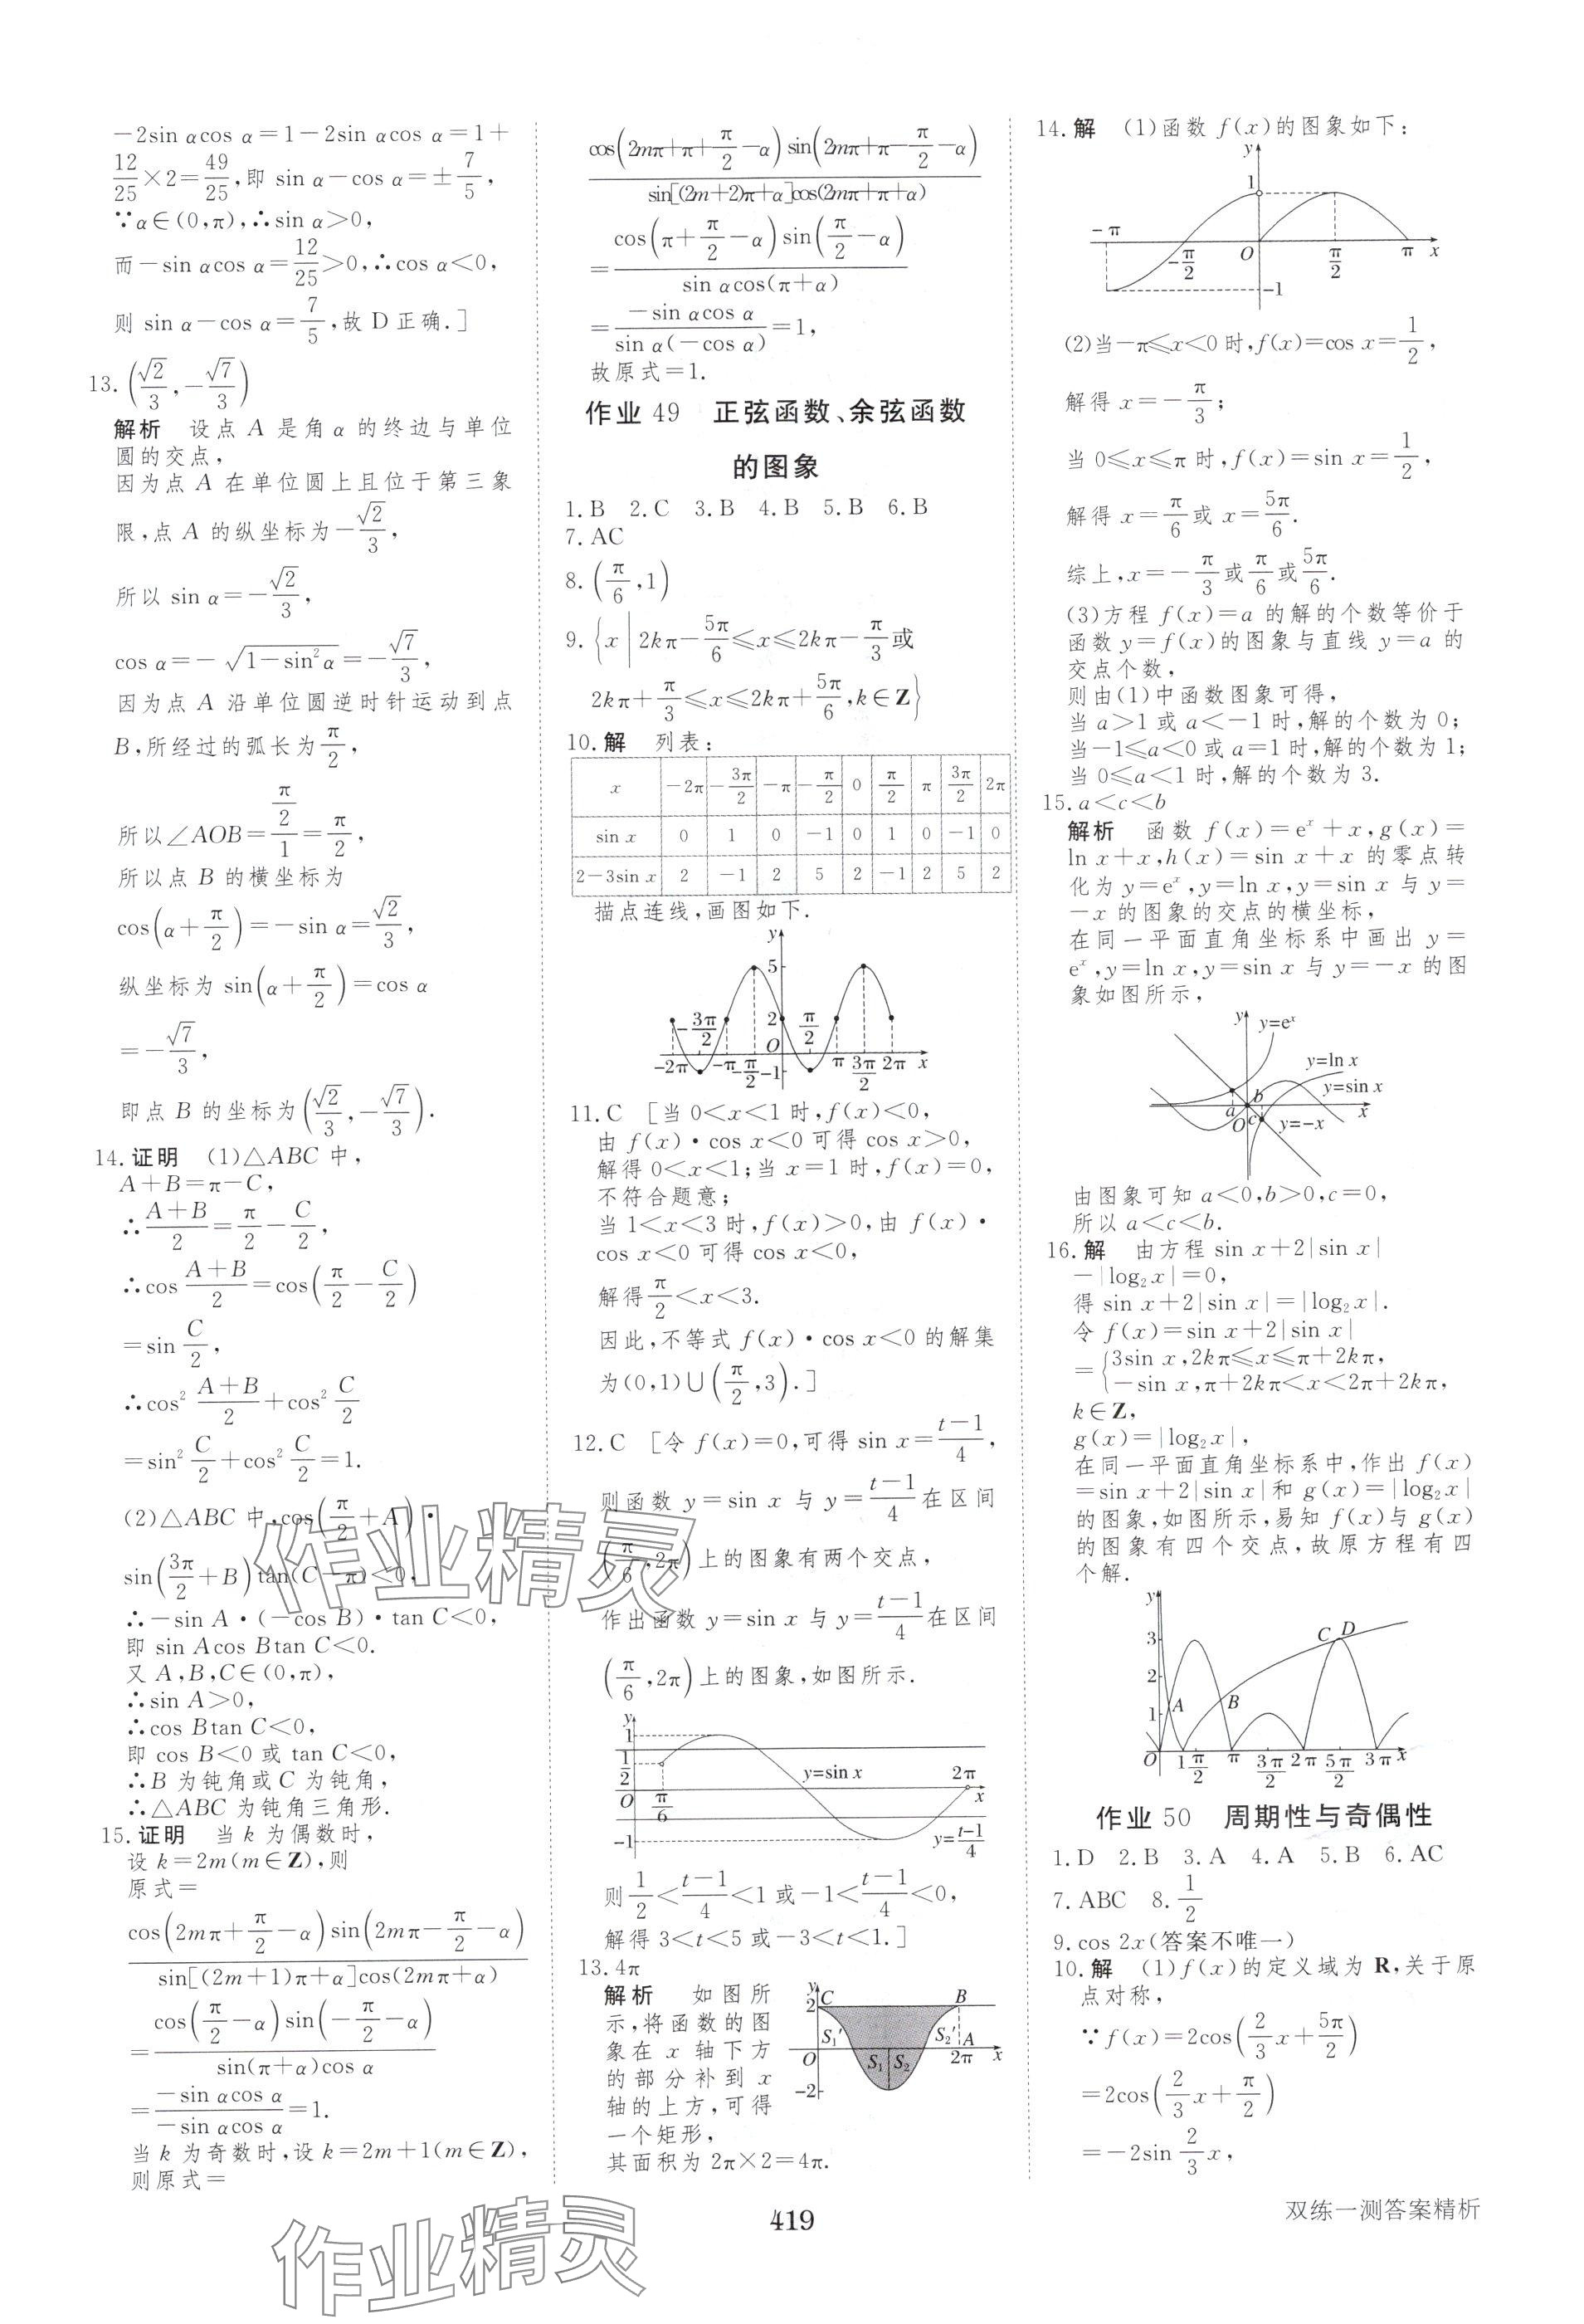 －2sin αcos α＝1－2sin αcos α＝1＋
12/25×2＝49/25,即 sin α－cos α＝±7/5,
∵α∈(0,π),∴sin α＞0,
而－sin αcos α＝12/25＞0,∴cos α＜0,
则 sin α－cos α＝7/5,故 D 正确.]
13.(√2/3,－√7/3)
解析 设点 A 是角 α 的终边与单位
圆的交点,
因为点 A 在单位圆上且位于第三象
限,点 A 的纵坐标为－√2/3,
所以 sin α＝－√2/3,
cos α＝－√(1－sin²α)＝－√7/3,
因为点 A 沿单位圆逆时针运动到点
B,所经过的弧长为π/2,
所以∠AOB＝(π/2)/1＝π/2,
所以点 B 的横坐标为
cos(α＋π/2)＝－sin α＝√2/3,
纵坐标为 sin(α＋π/2)＝cos α
＝－√7/3,
即点 B 的坐标为(√2/3,－√7/3).
14.证明 (1)△ABC 中,
A＋B＝π－C,
∴(A＋B)/2＝π/2－C/2,
∴cos (A＋B)/2＝cos(π/2－C/2)
＝sin C/2,
∴cos² (A＋B)/2＋cos² C/2
＝sin² C/2＋cos² C/2＝1.
(2)△ABC 中,cos(π/2＋A)·
sin(3π/2＋B)tan(C－π)＜0,
∴－sin A·(－cos B)·tan C＜0,
即 sin Acos Btan C＜0.
又 A,B,C∈(0,π),
∴sin A＞0,
∴cos Btan C＜0,
即 cos B＜0 或 tan C＜0,
∴B 为钝角或 C 为钝角,
∴△ABC 为钝角三角形.
15.证明 当 k 为偶数时,
设 k＝2m(m∈Z),则
原式＝
cos(2mπ＋π/2－α)sin(2mπ－π/2－α)
sin[(2m＋1)π＋α]cos(2mπ＋α)
＝cos(π/2－α)sin(－π/2－α)
sin(π＋α)cos α
＝－sin αcos α/－sin αcos α＝1.
当 k 为奇数时,设 k＝2m＋1(m∈Z),
则原式＝
cos(2mπ＋π＋π/2－α)sin(2mπ＋π－π/2－α)
sin[(2m＋2)π＋α]cos(2mπ＋π＋α)
＝cos(π＋π/2－α)sin(π/2－α)
sin αcos(π＋α)
＝－sin αcos α/sin α(－cos α)＝1,
故原式＝1.
作业 49 正弦函数、余弦函数
的图象
1.B 2.C 3.B 4.B 5.B 6.B
7.AC
8.(π/6,1)
9.{x|2kπ－5π/6≤x≤2kπ－π/3或
2kπ＋π/3≤x≤2kπ＋5π/6,k∈Z}
10.解 列表:
x －2π －3π/2 －π －π/2 0 π/2 π 3π/2 2π
sin x 0 1 0 －1 0 1 0 －1 0
2－3sin x 2 －1 2 5 2 －1 2 5 2
描点连线,画图如下.
y 5 2 O －1 －2π －3π/2 －π －π/2 π/2 π 3π/2 2π x
11.C [当 0＜x＜1 时,f(x)＜0,
由 f(x)·cos x＜0 可得 cos x＞0,
解得 0＜x＜1;当 x＝1 时,f(x)＝0,
不符合题意;
当 1＜x＜3 时,f(x)＞0,由 f(x)·
cos x＜0 可得 cos x＜0,
解得π/2＜x＜3.
因此,不等式 f(x)·cos x＜0 的解集
为(0,1)∪(π/2,3).]
12.C [令 f(x)＝0,可得 sin x＝(t－1)/4,
则函数 y＝sin x 与 y＝(t－1)/4 在区间
(π/6,2π)上的图象有两个交点,
作出函数 y＝sin x 与 y＝(t－1)/4 在区间
(π/6,2π)上的图象,如图所示.
y 1 1/2 O π/6 －1 y＝sin x 2π x y＝(t－1)/4
则 1/2＜(t－1)/4＜1 或－1＜(t－1)/4＜0,
解得 3＜t＜5 或－3＜t＜1.]
13.4π
解析 如图所
示,将函数的图
象在 x 轴下方
的部分补到 x
轴的上方,可得
一个矩形,
其面积为 2π×2＝4π.
y 2 C B S₁′ S₂′ A O S₁ S₂ 2π x －2
14.解 (1)函数 f(x)的图象如下:
y 1 －π －π/2 O π/2 π x －1
(2)当－π≤x＜0 时,f(x)＝cos x＝1/2,
解得 x＝－π/3;
当 0≤x≤π 时,f(x)＝sin x＝1/2,
解得 x＝π/6或 x＝5π/6.
综上,x＝－π/3或π/6或5π/6.
(3)方程 f(x)＝a 的解的个数等价于
函数 y＝f(x)的图象与直线 y＝a 的
交点个数,
则由(1)中函数图象可得,
当 a＞1 或 a＜－1 时,解的个数为 0;
当－1≤a＜0 或 a＝1 时,解的个数为 1;
当 0≤a＜1 时,解的个数为 3.
15.a＜c＜b
解析 函数 f(x)＝eˣ＋x,g(x)＝
ln x＋x,h(x)＝sin x＋x 的零点转
化为 y＝eˣ,y＝ln x,y＝sin x 与 y＝
－x 的图象的交点的横坐标,
在同一平面直角坐标系中画出 y＝
eˣ,y＝ln x,y＝sin x 与 y＝－x 的图
象如图所示,
y y＝eˣ y＝ln x y＝sin x a b O c x y＝－x
由图象可知 a＜0,b＞0,c＝0,
所以 a＜c＜b.
16.解 由方程 sin x＋2|sin x|
－|log₂x|＝0,
得 sin x＋2|sin x|＝|log₂x|.
令 f(x)＝sin x＋2|sin x|
＝{3sin x,2kπ≤x≤π＋2kπ,
－sin x,π＋2kπ＜x＜2π＋2kπ,
k∈Z,
g(x)＝|log₂x|,
在同一平面直角坐标系中,作出 f(x)
＝sin x＋2|sin x|和 g(x)＝|log₂x|
的图象,如图所示,易知 f(x)与 g(x)
的图象有四个交点,故原方程有四
个解.
y 3 2 1 A B C D O 1 π/2 π 3π/2 2π 5π/2 3π x
作业 50 周期性与奇偶性
1.D 2.B 3.A 4.A 5.B 6.AC
7.ABC 8.1/2
9.cos 2x(答案不唯一)
10.解 (1)f(x)的定义域为 R,关于原
点对称,
∵f(x)＝2cos(2/3 x＋5π/2)
＝2cos(2/3 x＋π/2)
＝－2sin 2/3 x,
419
双练一测答案精析
作业精灵
作业精灵